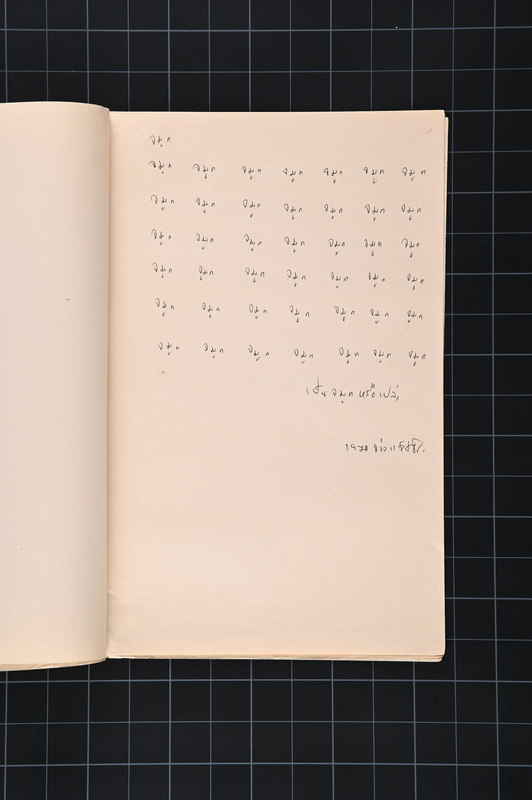 จมูก
จมูก จมูก จมูก จมูก จมูก จมูก จมูก
จมูก จมูก จมูก จมูก จมูก จมูก จมูก
จมูก จมูก จมูก จมูก จมูก จมูก จมูก
จมูก จมูก จมูก จมูก จมูก จมูก จมูก
จมูก จมูก จมูก จมูก จมูก จมูก จมูก
จมูก จมูก จมูก จมูก จมูก จมูก จมูก
เป็น จมูก หรือเปล่า